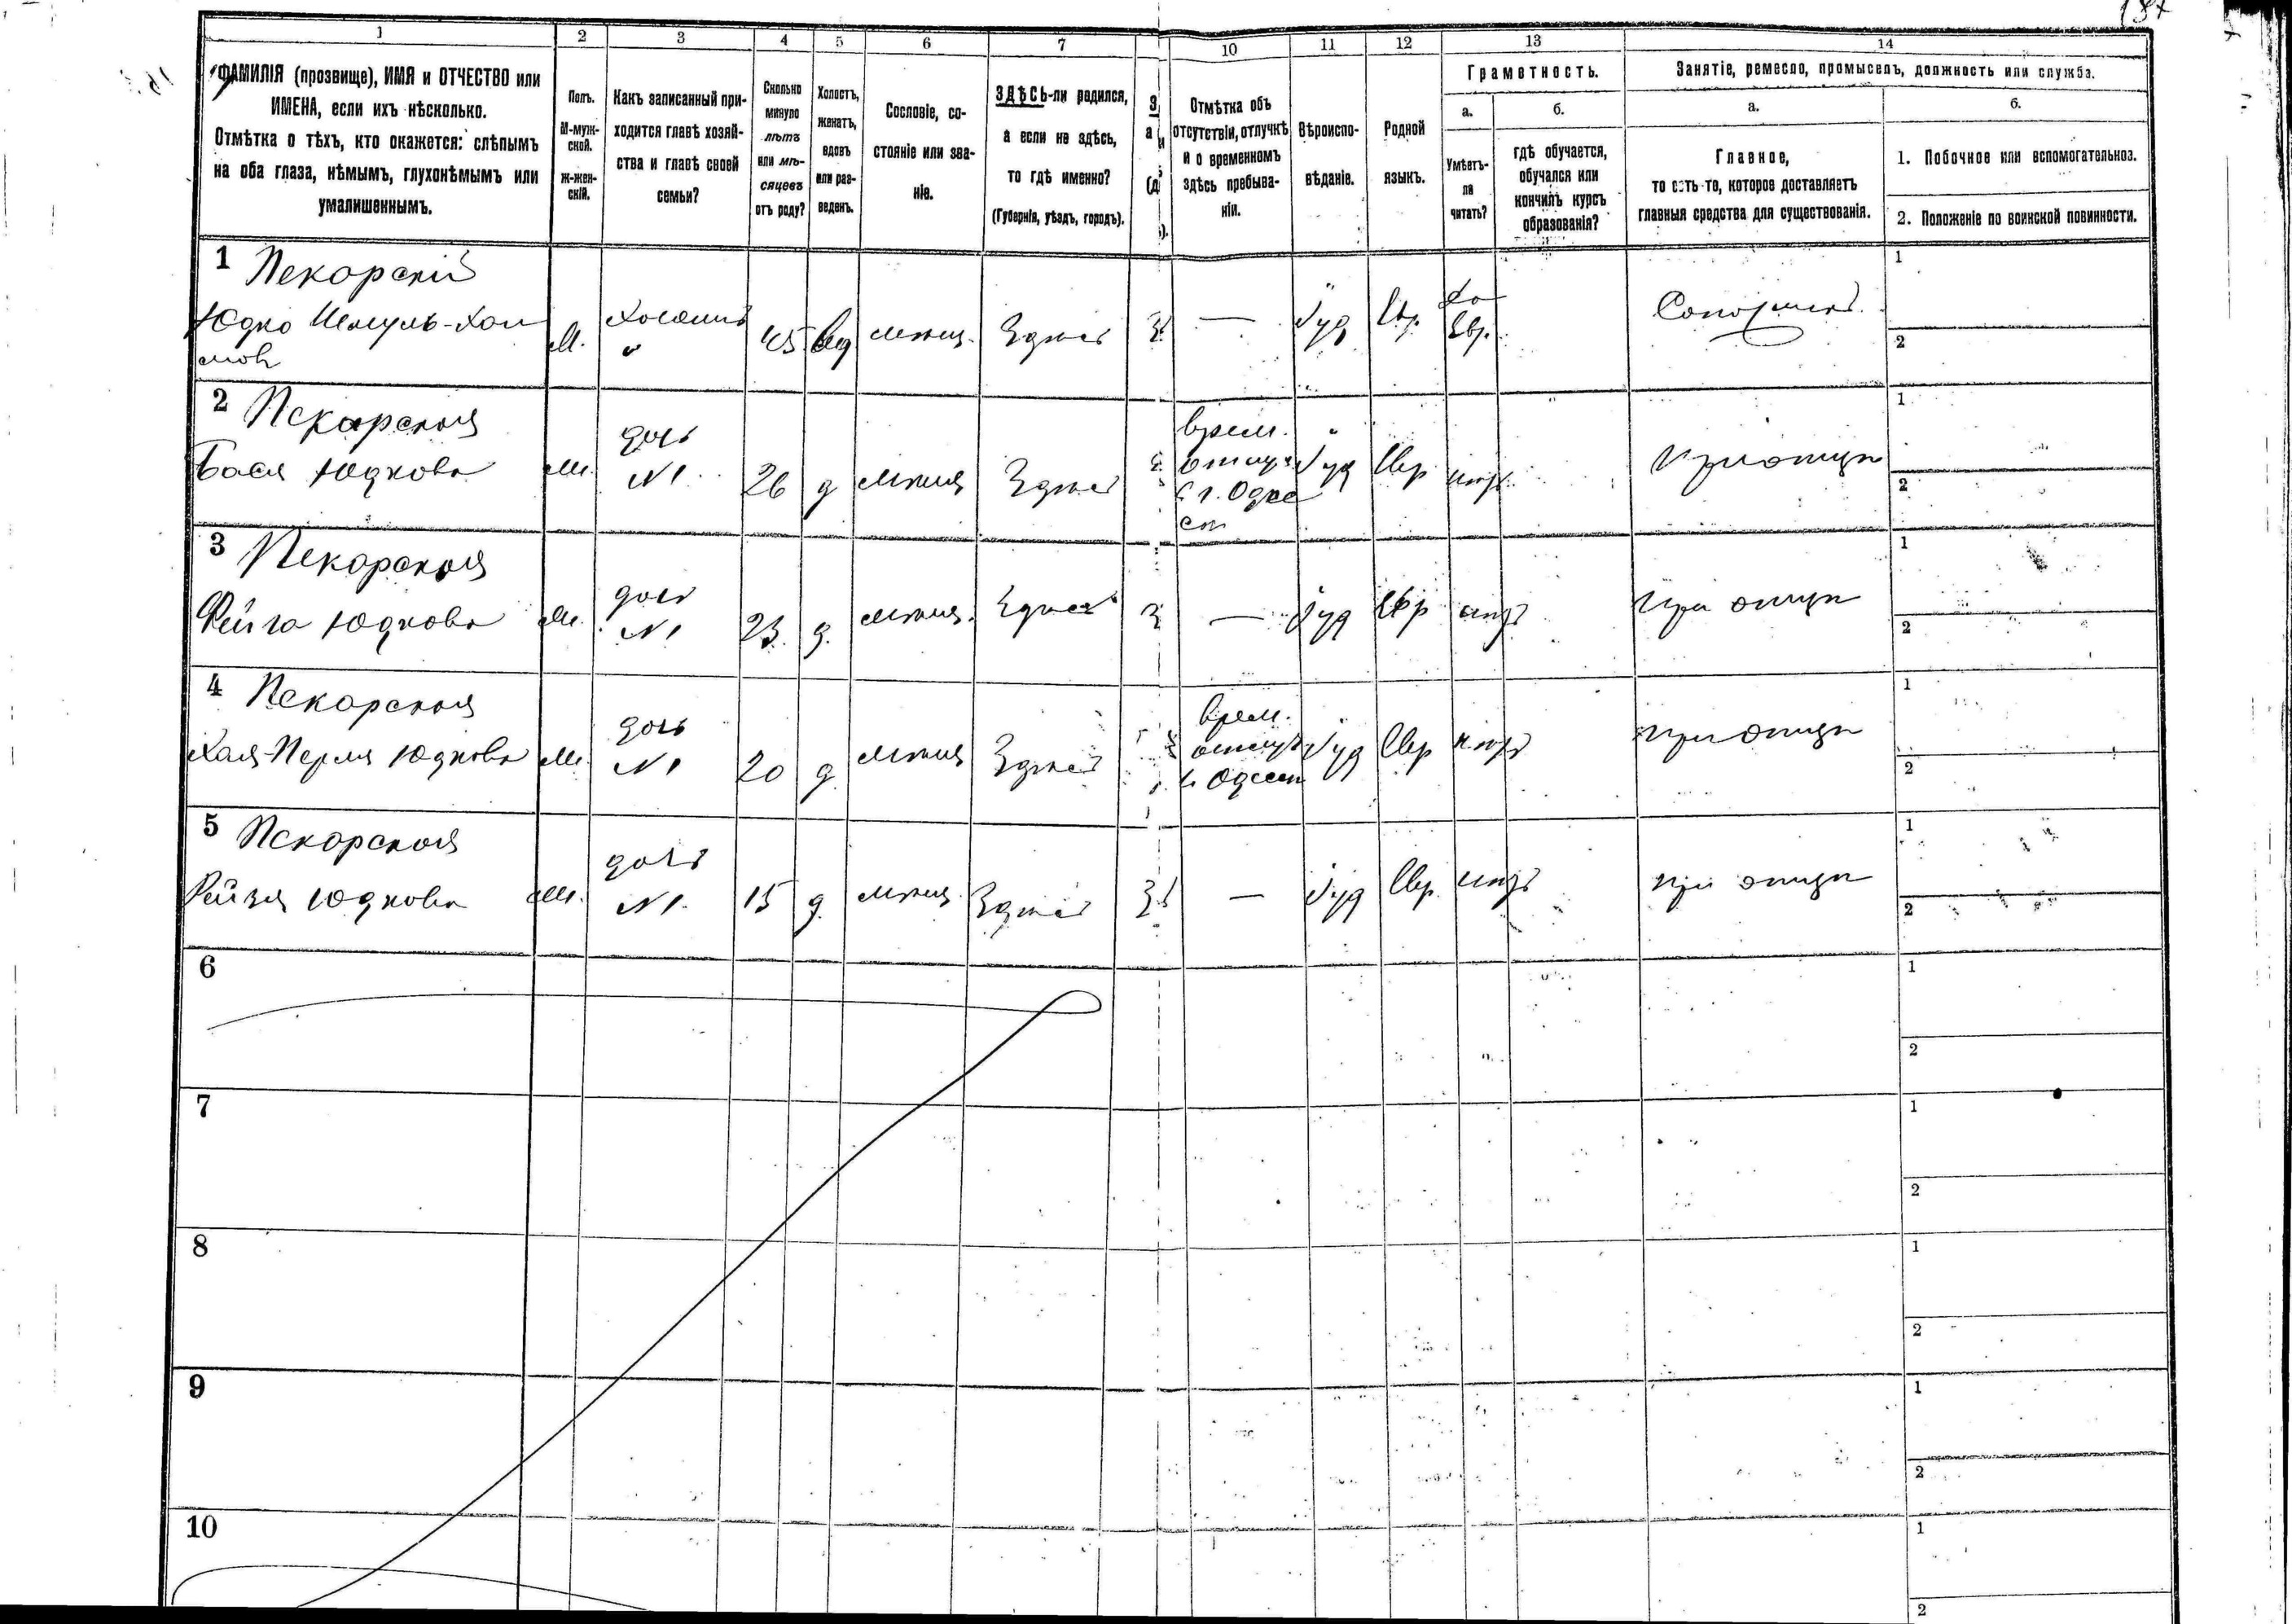 1 2 3 4 5 6 7 10 11 12 13 14
ФАМИЛІЯ (прозвище), ИМЯ и ОТЧЕСТВО или
ИМЕНА, если ихъ нѣсколько.
Отмѣтка о тѣхъ, кто окажется: слѣпымъ
на оба глаза, нѣмымъ, глухонѣмымъ или
умалишеннымъ.
Полъ.
М-муж-
ской.
Ж-жен-
скій.
Какъ записанный при-
ходится главѣ хозяй-
ства и главѣ своей
семьи?
Сколько
минуло
лѣтъ
или мѣ-
сяцевъ
отъ роду?
Холостъ,
женатъ,
вдовъ
или раз-
веденъ.
Сословіе, со-
стояніе или зва-
ніе.
ЗДѢСЬ-ли родился,
а если не здѣсь,
то гдѣ именно?
(Губернія, уѣздъ, городъ).
Отмѣтка объ
отсутствіи, отлучкѣ
и о временномъ
здѣсь пребыва-
ніи.
Вѣроиспо-
вѣданіе.
Родной
языкъ.
Грамотность.
а.
Умѣетъ-
ли
читать?
б.
гдѣ обучается,
обучался или
кончилъ курсъ
образованія?
Занятіе, ремесло, промыселъ, должность или служба.
а.
Главное,
то есть то, которое доставляетъ
главныя средства для существованія.
б.
1. Побочное или вспомогательное.
2. Положеніе по воинской повинности.
1 Пекарскій
Юдко Шмуль-Хаи
мов
М. Хозяинъ 45 вд мѣщ. Здѣсь — Іуд Евр. По
Евр. Сапожникъ.
1
2
2 Пекарская
Бася Юдкова
дочь
№ 1 26 д мѣщ Здѣсь врем.
отлуч
в г. Одес
сѣ
Іуд Евр нѣтъ при отцѣ
1
2
3 Пекарская
Фейга Юдкова
дочь
№ 1 23 д. мѣщ. Здѣсь — Іуд Евр нѣтъ при отцѣ
1
2
4 Пекарская
Хая-Перля Юдкова
дочь
№ 1 20 д мѣщ Здѣсь врем.
отлуч
Іуд Евр нѣтъ при отцѣ
1
2
5 Пекарская
Рейзя Юдкова
дочь
№ 1. 15 д. мѣщ. Здѣсь — Іуд Евр. нѣтъ при отцѣ
1
2
6
1
2
7
1
2
8
1
2
9
1
2
10
1
2